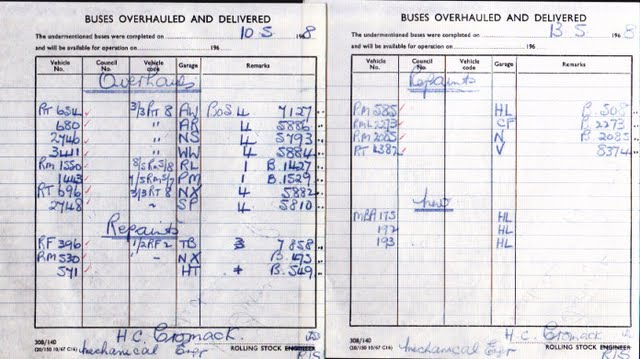 BUSES OVERHAULED AND DELIVERED
The undermentioned buses were completed on 10 5 1968
and will be available for operation on 196
Vehicle No. Council No. Vehicle code Garage Remarks
Overhauls
RT 654 ✓ 3/3RT 8 AW BoS 4 7127
680 ✓ " AR 4 5886
2746 ✓ " NS 4 5793
3411 ✓ " WW 4 5884
RM 1550 RL 1 B.1427
1443 PM 1 B.1529
RT 696 ✓ 3/3RT 8 NX 4 5882
2748 ✓ " SP 4 5810
Repaints
RF 396 ✓ 1/2RF2 TB 3 7858
RM 530 ✓ NX B.493
571 ✓ HT B.549
H.C. Cromack.
308/140
(20/150 10/67 C16) Mechanical Engr ROLLING STOCK ENGINEER
R/S
BUSES OVERHAULED AND DELIVERED
The undermentioned buses were completed on 13 5 1968
and will be available for operation on 196
Vehicle No. Council No. Vehicle code Garage Remarks
Repaints
RM 585 ✓ HL B. 508
RML 2273 ✓ CF B 2273
RM 2085 ✓ N B 2085
RT 4382 ✓ V 8374
New
MBA 175 HL
192 HL
193 HL
H.C. Cromack
308/140
(20/150 10/67 C16) Mechanical Engr ROLLING STOCK ENGINEER
R/S